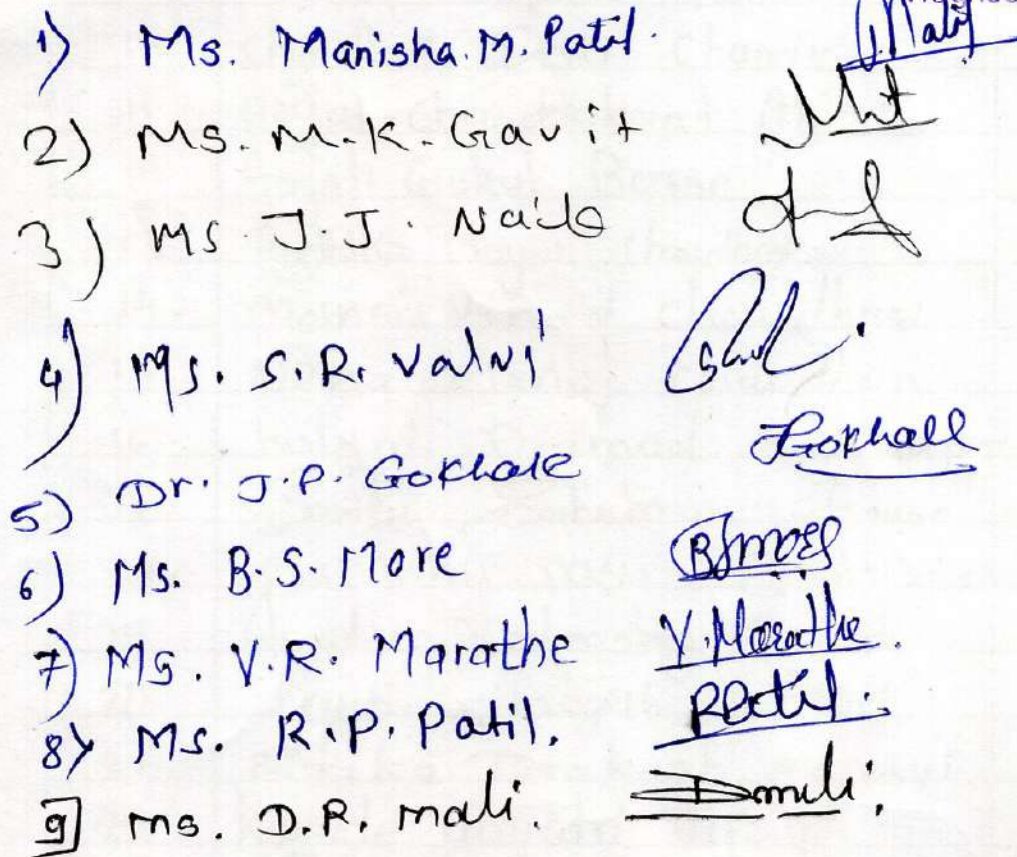 1) Ms. Manisha. M. Patil.
2) Ms. M. K. Gavit
3) Ms J. J. Naik
4) Ms. S. R. Valvi
5) Dr. J. P. Gokhale JGokhale
6) Ms. B. S. More BSmore
7) Ms. V. R. Marathe V. Marathe.
8) Ms. R. P. Patil. RPatil.
9] ms. D. R. mali. Dmali.